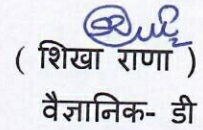 ( शिखा राणा )
वैज्ञानिक- डी